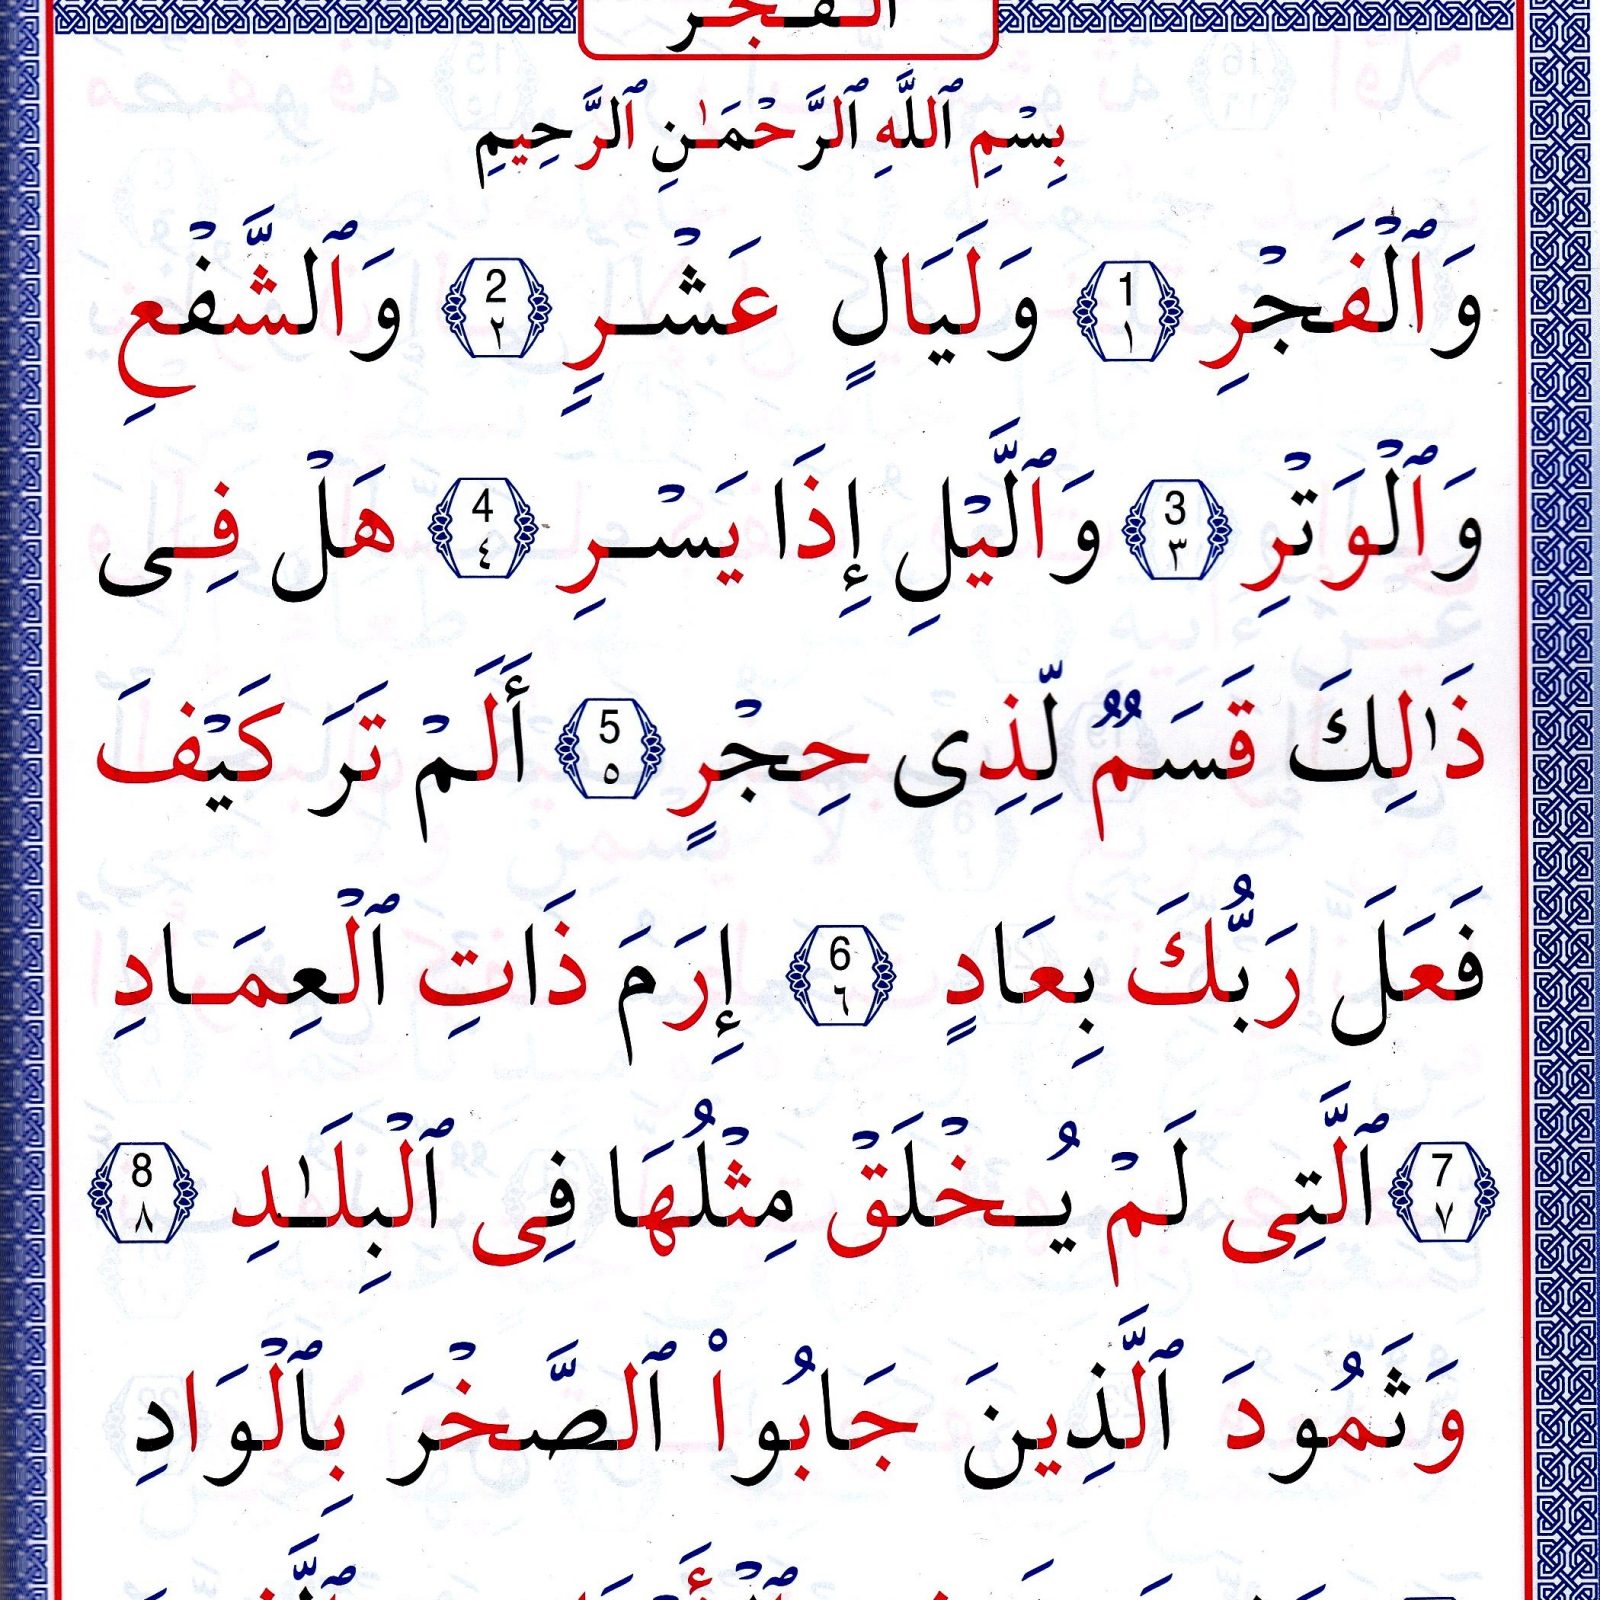 الفجر
بِسْمِ ٱللَّهِ ٱلرَّحْمَـٰنِ ٱلرَّحِيمِ
وَٱلْفَجْرِ 1 ١ وَلَيَالٍ عَشْرٍ 2 ٢ وَٱلشَّفْعِ
وَٱلْوَتْرِ 3 ٣ وَٱلَّيْلِ إِذَا يَسْرِ 4 ٤ هَلْ فِى
ذَٰلِكَ قَسَمٌ لِّذِى حِجْرٍ 5 ٥ أَلَمْ تَرَ كَيْفَ
فَعَلَ رَبُّكَ بِعَادٍ 6 ٦ إِرَمَ ذَاتِ ٱلْعِمَادِ
7 ٧ ٱلَّتِى لَمْ يُخْلَقْ مِثْلُهَا فِى ٱلْبِلَـٰدِ 8 ٨
وَثَمُودَ ٱلَّذِينَ جَابُوا۟ ٱلصَّخْرَ بِٱلْوَادِ